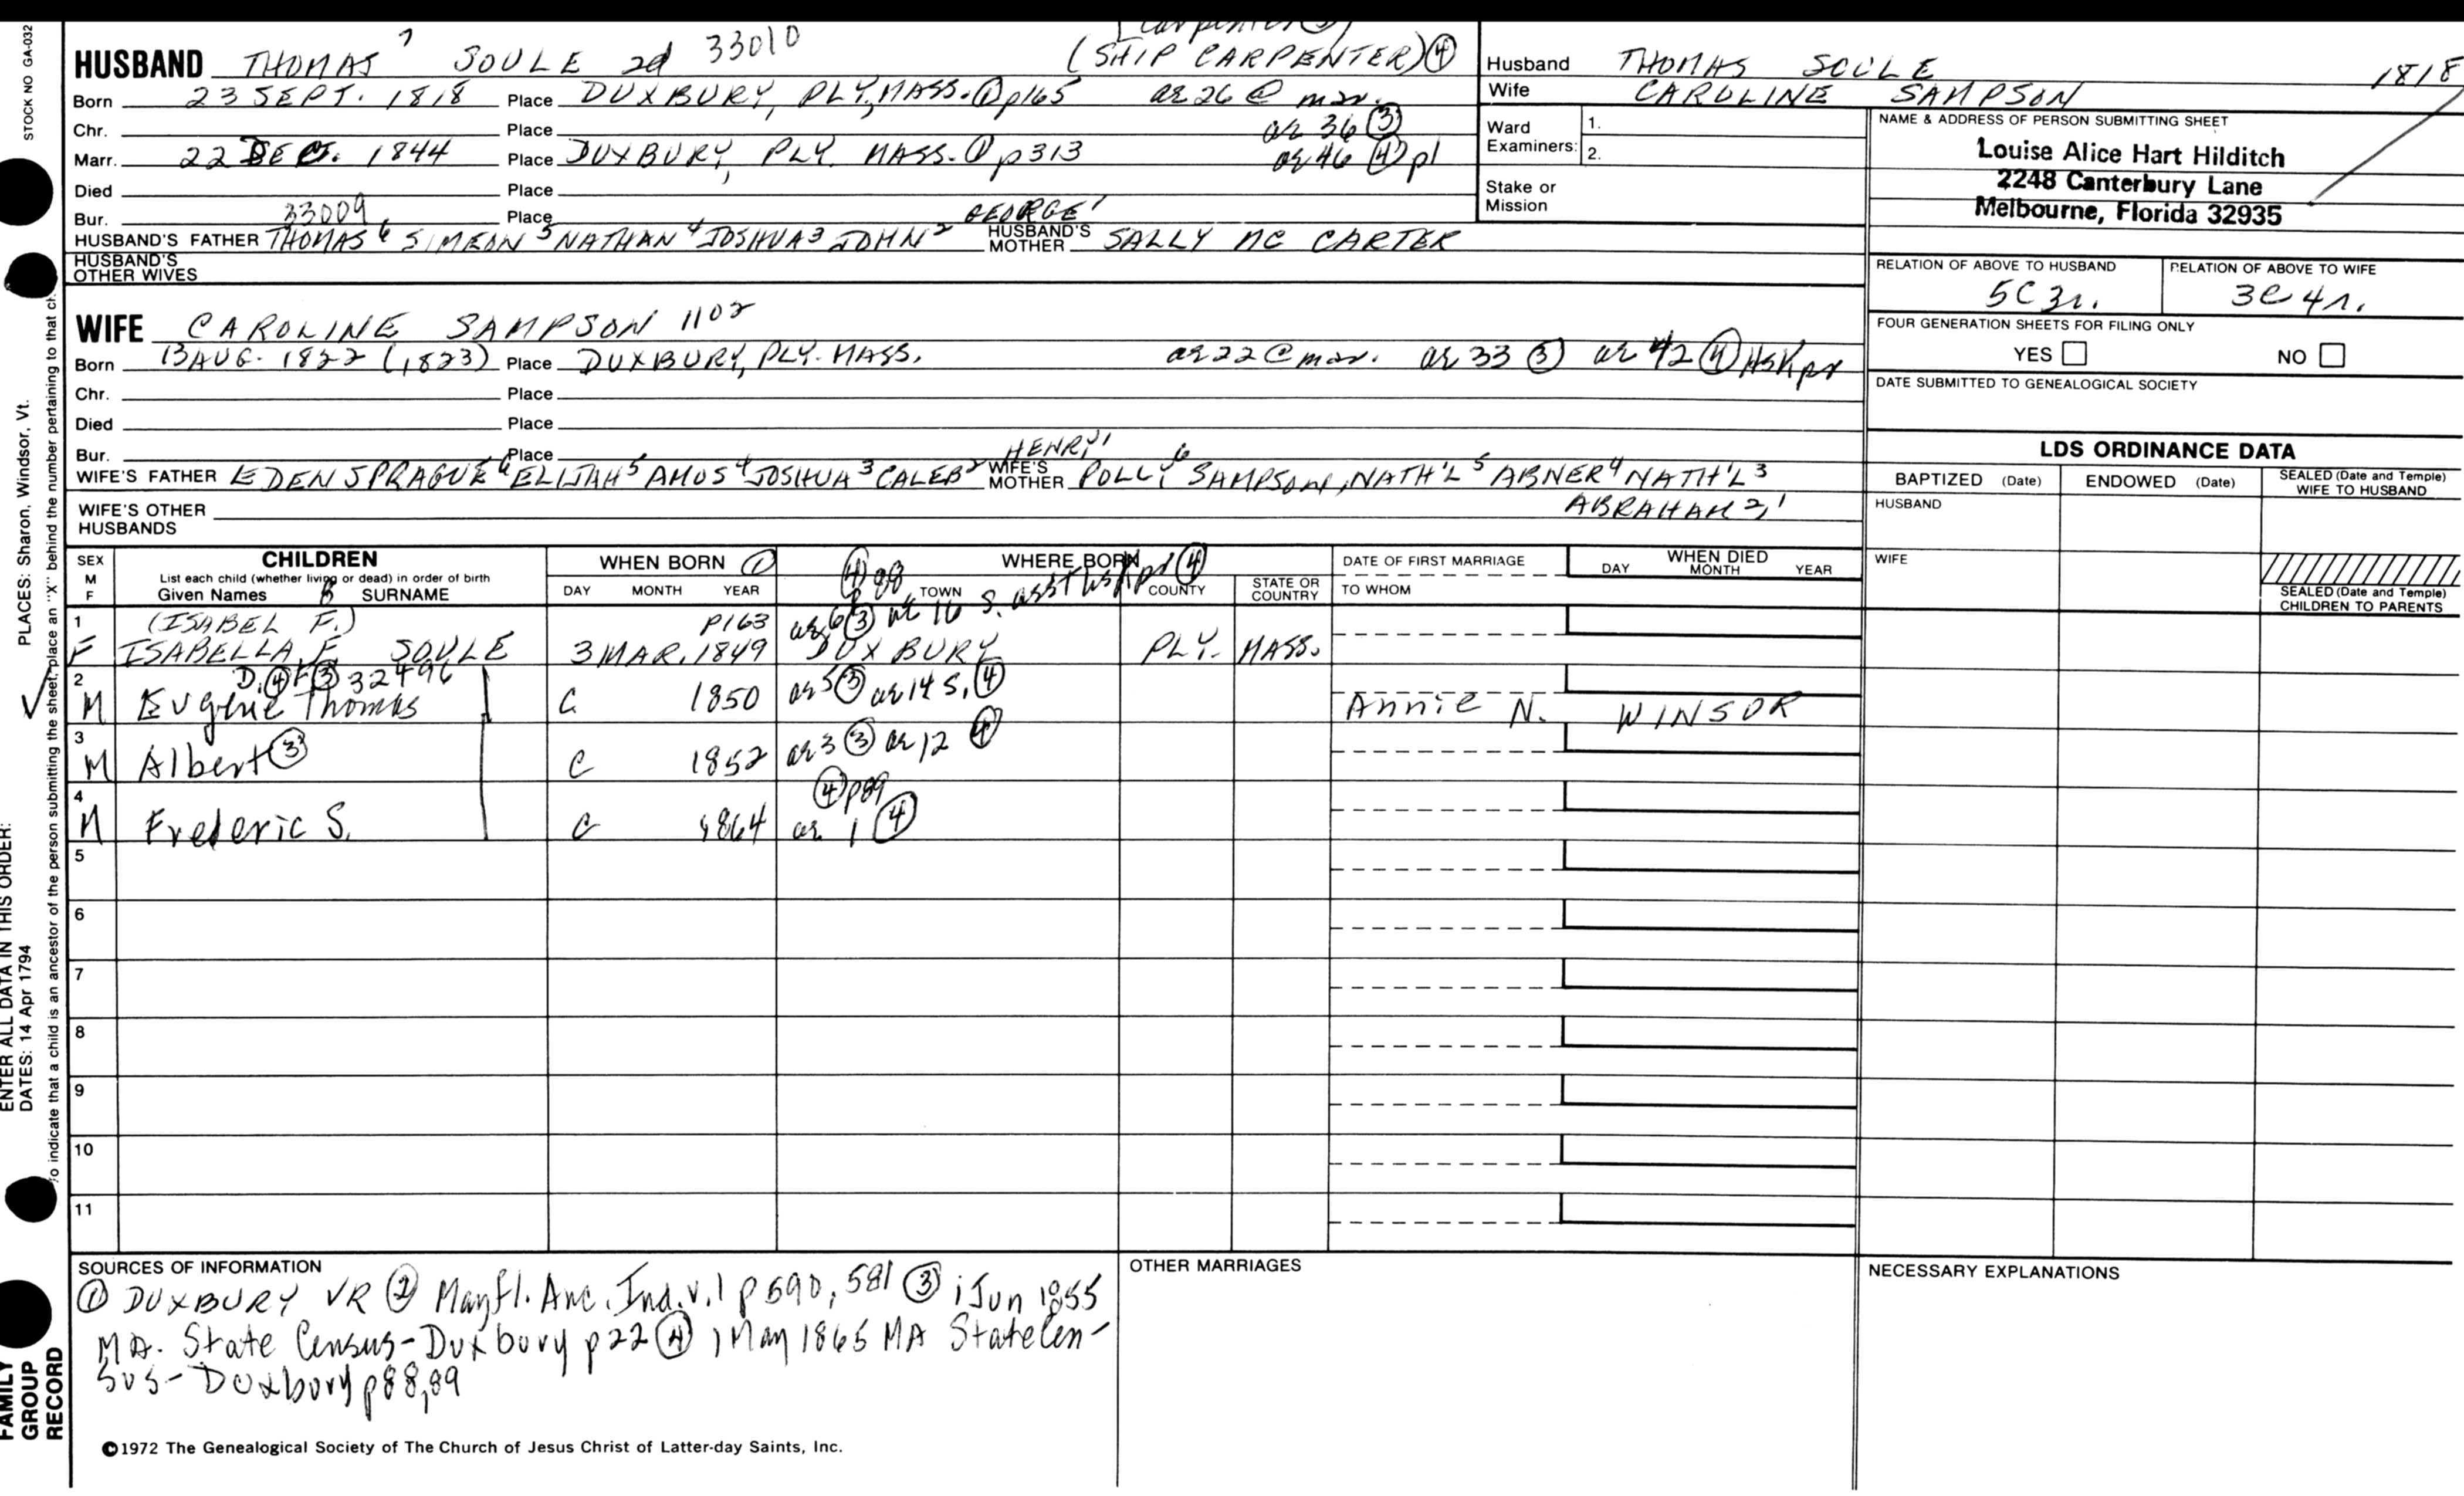 STOCK NO GA-032
Carpenter 3
HUSBAND THOMAS 7 SOULE 2d 33010 (SHIP CARPENTER) ④
Born 23 SEPT. 1818 Place DUXBURY, PLY, MASS. ① p165 ae 26 @ mar.
Chr. Place ae 36 ③
Marr. 22 DEC. 1844 Place DUXBURY, PLY. MASS. ① p313 ae 46 ④ p1
Died Place
Bur. 33009 Place GEORGE 1
HUSBAND'S FATHER THOMAS 6 SIMEON 5 NATHAN 4 JOSHUA 3 JOHN 2 HUSBAND'S MOTHER SALLY MC CARTER
HUSBAND'S OTHER WIVES
Husband THOMAS SOULE 1818
Wife CAROLINE SAMPSON
Ward Examiners: 1.
2.
Stake or Mission
NAME & ADDRESS OF PERSON SUBMITTING SHEET
Louise Alice Hart Hilditch
2248 Canterbury Lane
Melbourne, Florida 32935
RELATION OF ABOVE TO HUSBAND RELATION OF ABOVE TO WIFE
5C 3r. 3C 4r.
FOUR GENERATION SHEETS FOR FILING ONLY
YES NO
DATE SUBMITTED TO GENEALOGICAL SOCIETY
WIFE CAROLINE SAMPSON 1102
Born 13 AUG. 1822 (1823) Place DUXBURY, PLY. MASS. ae 22 @ mar. ae 33 ③ ae 42 ④ Hskpr
Chr. Place
Died Place
Bur. Place HENRY 1
WIFE'S FATHER EDEN SPRAGUE 6 ELIJAH 5 AMOS 4 JOSHUA 3 CALEB 2 WIFE'S MOTHER POLLY 6 SAMPSON, NATH'L 5 ABNER 4 NATH'L 3
WIFE'S OTHER HUSBANDS ABRAHAM 2,1
LDS ORDINANCE DATA
BAPTIZED (Date) ENDOWED (Date) SEALED (Date and Temple) WIFE TO HUSBAND
HUSBAND
WIFE
SEALED (Date and Temple) CHILDREN TO PARENTS
SEX M F CHILDREN WHEN BORN ① WHERE BORN DATE OF FIRST MARRIAGE WHEN DIED
List each child (whether living or dead) in order of birth
Given Names SURNAME DAY MONTH YEAR TOWN COUNTY STATE OR COUNTRY TO WHOM DAY MONTH YEAR
④ p88 asst hskpr ④
1 (ISABEL F.) p163 ae 6 ③ ae 16 s.
F ISABELLA F. SOULE 3 MAR. 1849 DUXBURY PLY. MASS.
2 D. ④ F ③ 32496
M Eugene Thomas C 1850 ae 5 ③ ae 14 s. ④ Annie N. WINSOR
3
M Albert ③ C 1852 ae 3 ③ ae 12 ④
4 ④ p89
M Frederic S. C 1864 ae 1 ④
5
6
7
8
9
10
11
SOURCES OF INFORMATION
① DUXBURY VR ② Mayfl. Anc. Ind. v.1 p 590, 581 ③ 1 Jun 1855
MA. State Census - Duxbury p 22 ④ 1 May 1865 MA State Cen-
sus - Duxbury p 88,89
OTHER MARRIAGES
NECESSARY EXPLANATIONS
©1972 The Genealogical Society of The Church of Jesus Christ of Latter-day Saints, Inc.
PLACES: Sharon, Windsor, Vt.
To indicate that a child is an ancestor of the person submitting the sheet, place an "X" behind the number pertaining to that ch
ENTER ALL DATA IN THIS ORDER:
DATES: 14 Apr 1794
FAMILY GROUP RECORD